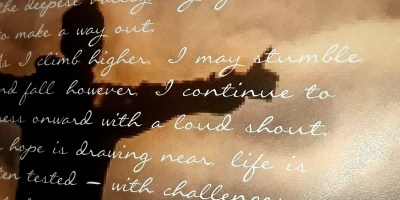 the deepest valley
to make a way out.
I climb higher. I may stumble
and fall however, I continue to
press onward with a loud shout.
hope is drawing near, life is
often tested – with challenges